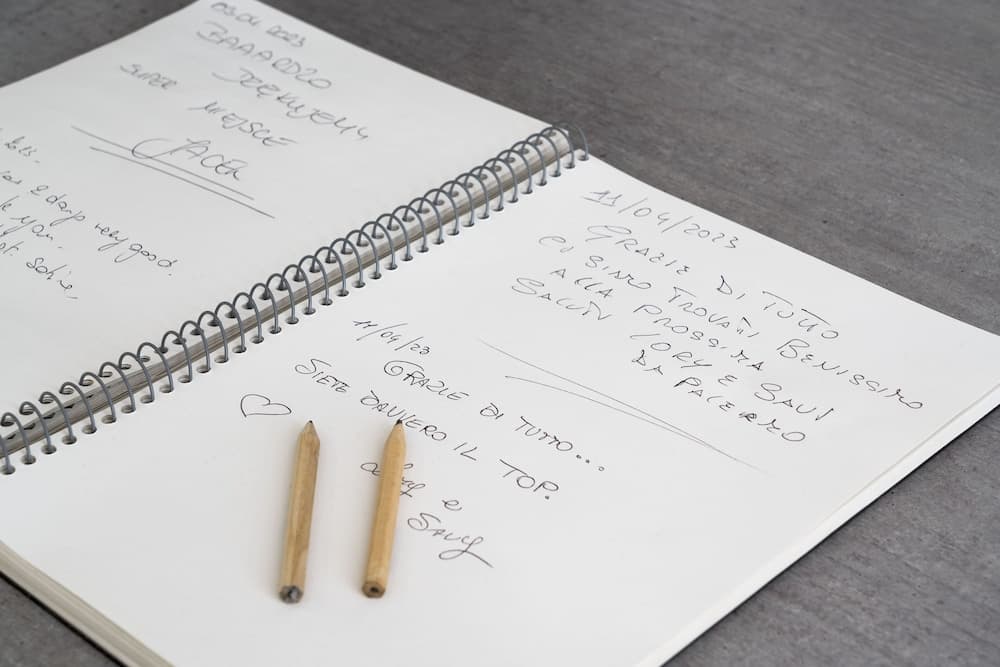 03.04.2023
BAAARDZO
DZIĘKUJEMY
SUPER MIEJSCE
JACEK
2 days very good.
11/04/2023
GRAZIE DI TUTTO
CI SIMO TROVATI BENISSIMO
ALLA PROSSIMA
SALUTI LORY E SAVI
DA PALERMO
11/04/23
GRAZIE DI TUTTO...
SIETE DAVVERO IL TOP.
e